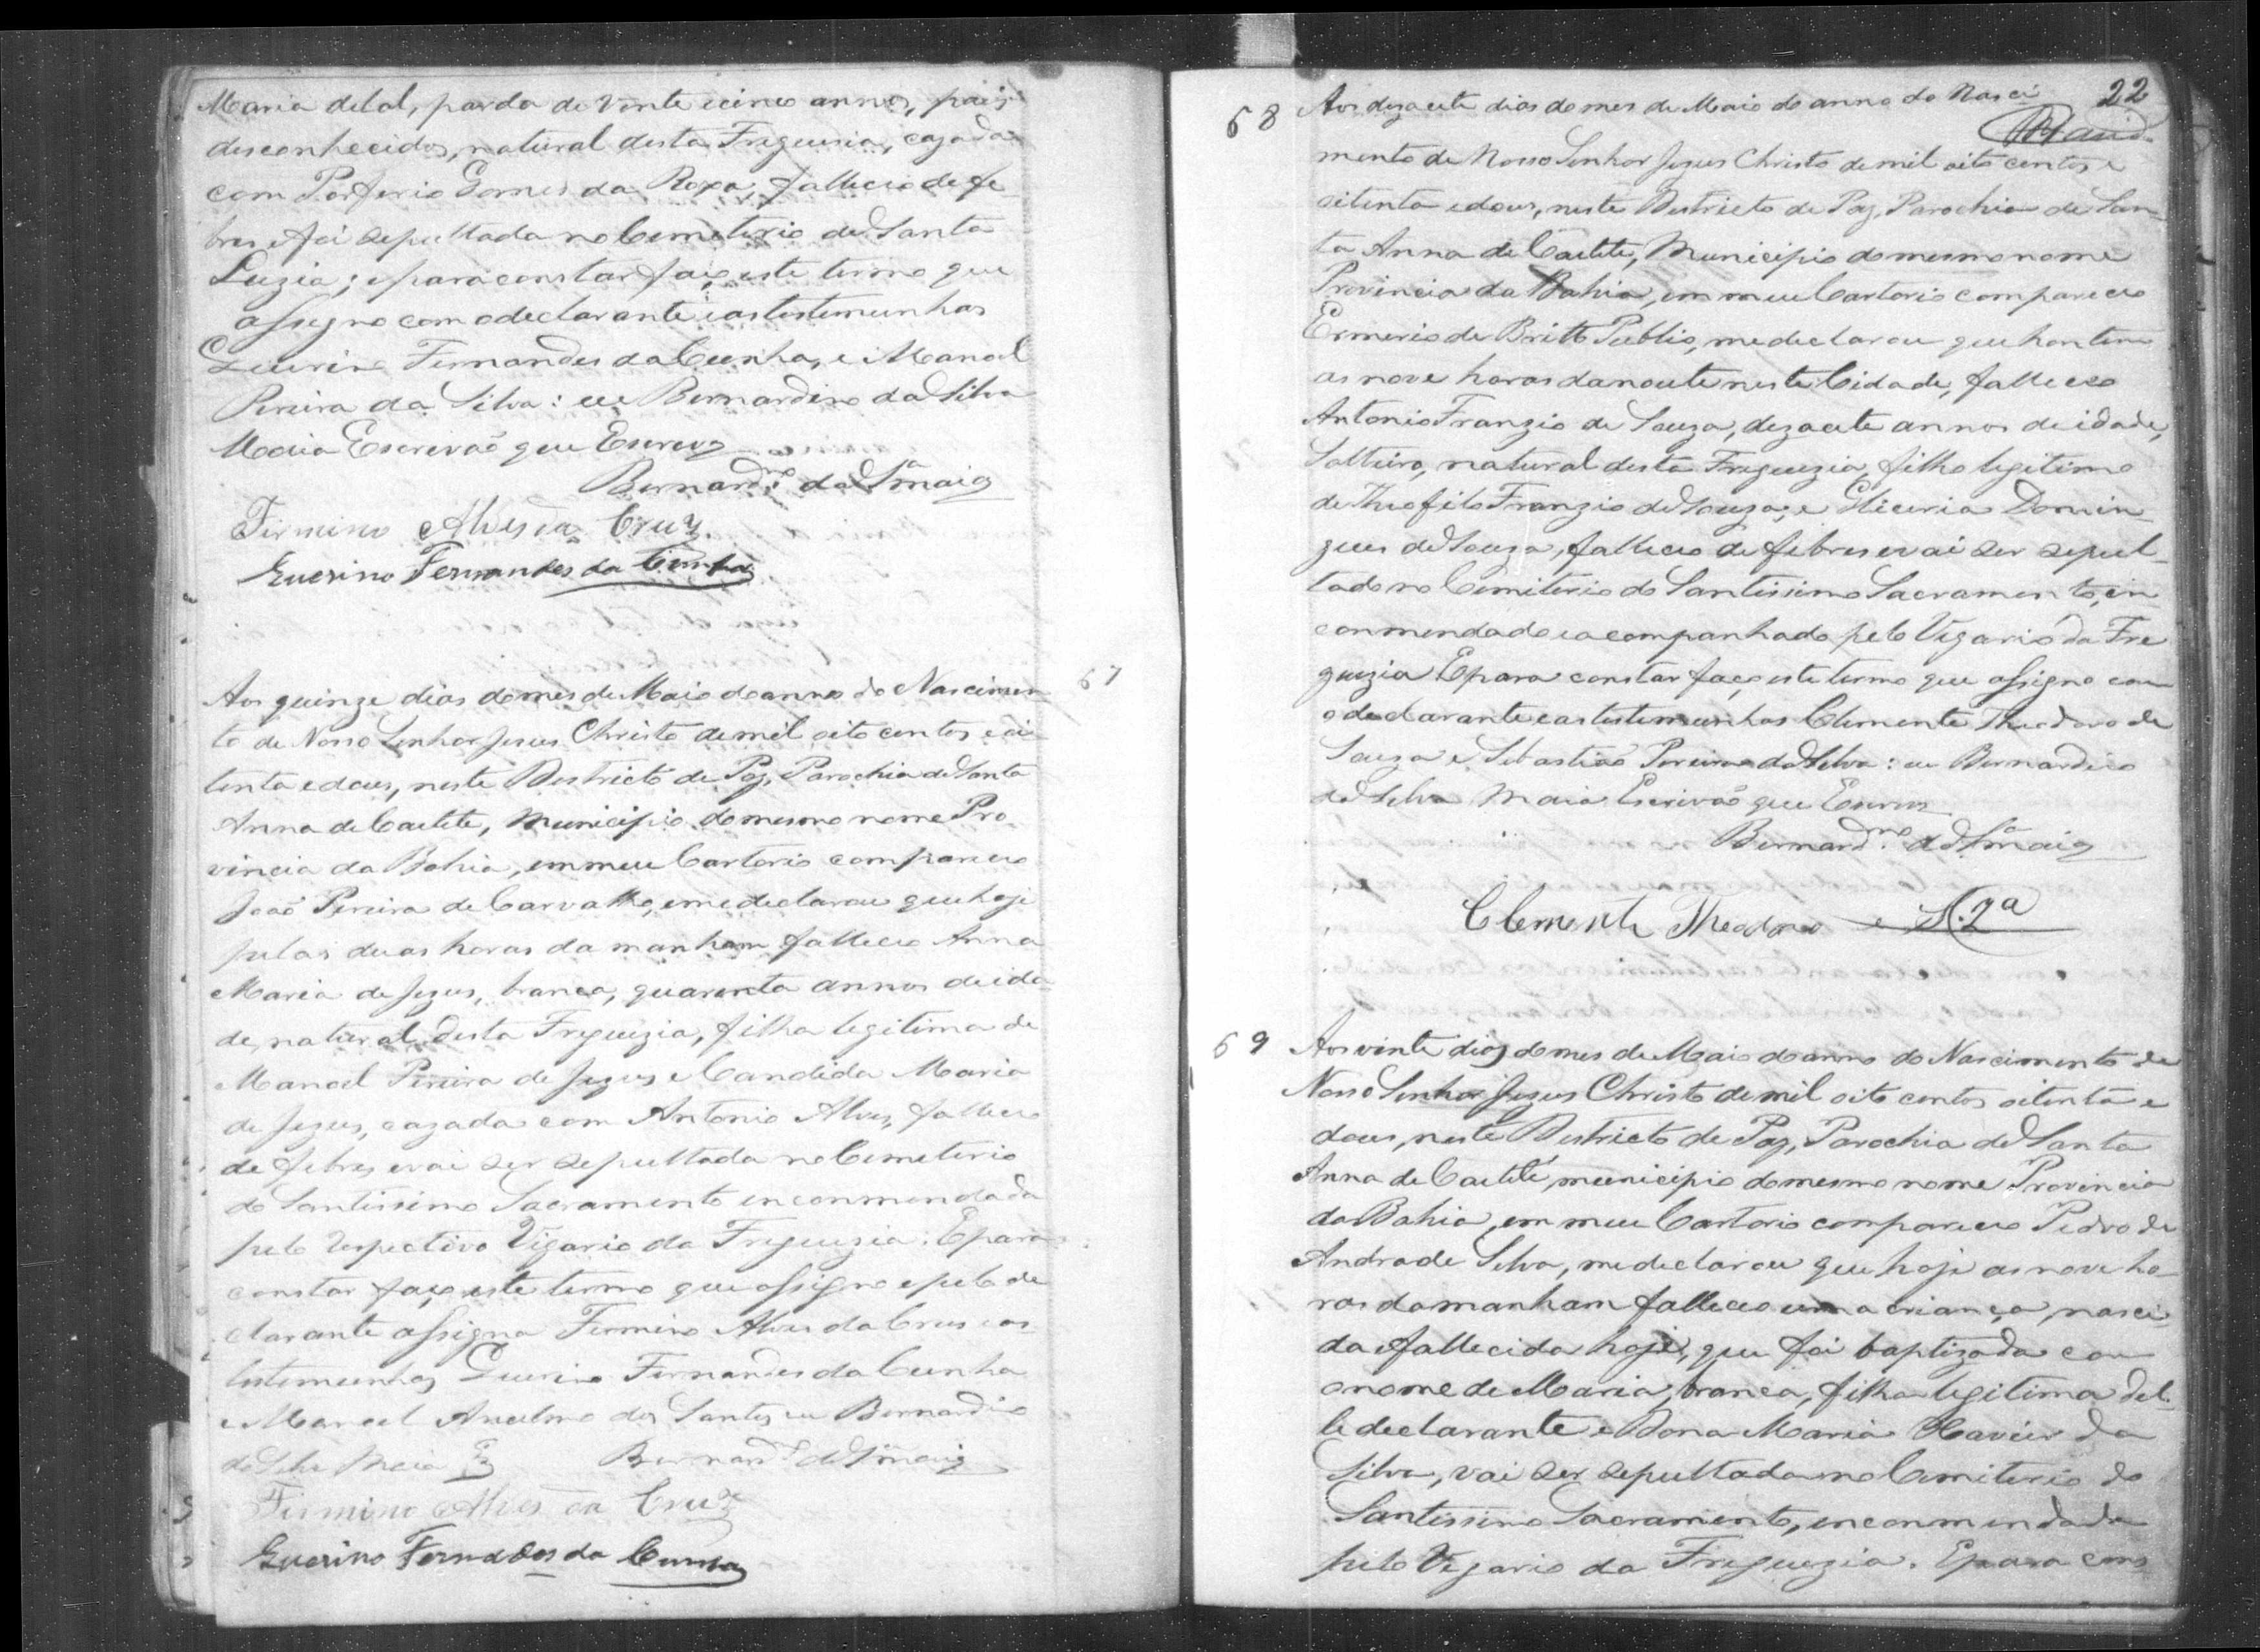 Maria de tal, parda de vinte e cinco annos, pais
desconhecidos, natural desta Freguesia, cazada
com Porferio Gomes da Roxa, falleceo de fe-
bres e foi sepultada no Cemeterio de Santa
Luzia; e para constar faço este termo que
assigno com o declarante e as testemunhas
Guerino Fernandes da Cunha, e Manoel
Pereira da Silva: eu Bernardino da Silva
Maia Escrevaõ que Escrevy
Bernardno da Sa Maia
Firmino Alves da Cruz.
Guerino Fernandes da Cunha
67
Aos quinze dias do mes de Maio do anno do Nascimen
to de Nosso Senhor Jesus Christo de mil oito centos e oi
tenta e dous, neste Destricto de Paz, Parochia de Santa
Anna de Caetete, Municipio do mesmo nome Pro
vincia da Bahia, em meu Cartorio compareceo
Joaõ Pereira de Carvalho, e me declarou que hoje
pelas duas horas da manham falleceo Anna
Maria de Jezus, branca, quarenta annos de ida
de, natural desta Freguezia, filha legitima de
Manoel Pereira de Jezus e Candida Maria
de Jezus, cazada com Antonio Alves, falleceo
de febres e vai ser sepultada no Cemeterio
do Santissimo Sacramento enconmendada
pelo respectivo Vigario da Freguezia. E para
constar faço este termo que assigno e pelo de
clarante assigna Firmino Alves da Crus e as
testemunhas Guerino Fernandes da Cunha
e Manoel Anselmo dos Santos eu Bernardino
da Silva Maia Bernardno da Sa Maia
Firmino Alves da Cruz
Guerino Fernades da Cunha
22
68 Aos dezacete dias do mes de Maio do anno do Nasci
mento de Nosso Senhor Jezus Christo de mil oito centos e
oitenta e dous, neste Destricto de Paz, Parochia de San-
ta Anna de Caetete, Municipio do mesmo nome
Provincia da Bahia, em meu Cartorio compareceo
Ermerio de Britto Publio, me declarou que hontem
as nove horas da noute neste Cidade, falleceo
Antonio Franzio de Souza, dezacete annos de idade,
Solteiro, natural desta Freguezia, filho legitimo
de Theofilo Franzio de Souza, e Gliceria Domin-
gues de Souza, falleceo de febres e vai ser sepul-
tado no Cemiterio do Santissimo Sacramento, en
conmendado e acompanhado pelo Vigario da Fre
guezia E para constar faço este termo que assigno com
o declarante e as testemunhas Clemente Theodoro de
Souza e Sebastiaõ Pereira da Silva: eu Bernardino
da Silva Maia Escrivaõ que Escrevy
Bernardno da Sa Maia
Clemente Theodoro e S. Za
69 Aos vinte dias do mes de Maio do anno do Nascimento de
Nosso Senhor Jezus Christo de mil oito centos oitenta e
dous, neste Destricto de Paz, Parochia de Santa
Anna de Caetité, municipio do mesmo nome Provincia
da Bahia, em meu Cartorio compareceo Pedro de
Andrade Silva, me declarou que hoje as nove ho
ras da manham falleceo uma criança, nasci
da e fallecida hoje, que foi baptizada com
o nome de Maria, branca, filha legitima del-
le declarante e Dona Maria Xavier da
Silva, vai ser sepultada no Cemiterio do
Santissimo Sacramento, enconmendada
pelo Vigario da Freguezia. E para cons